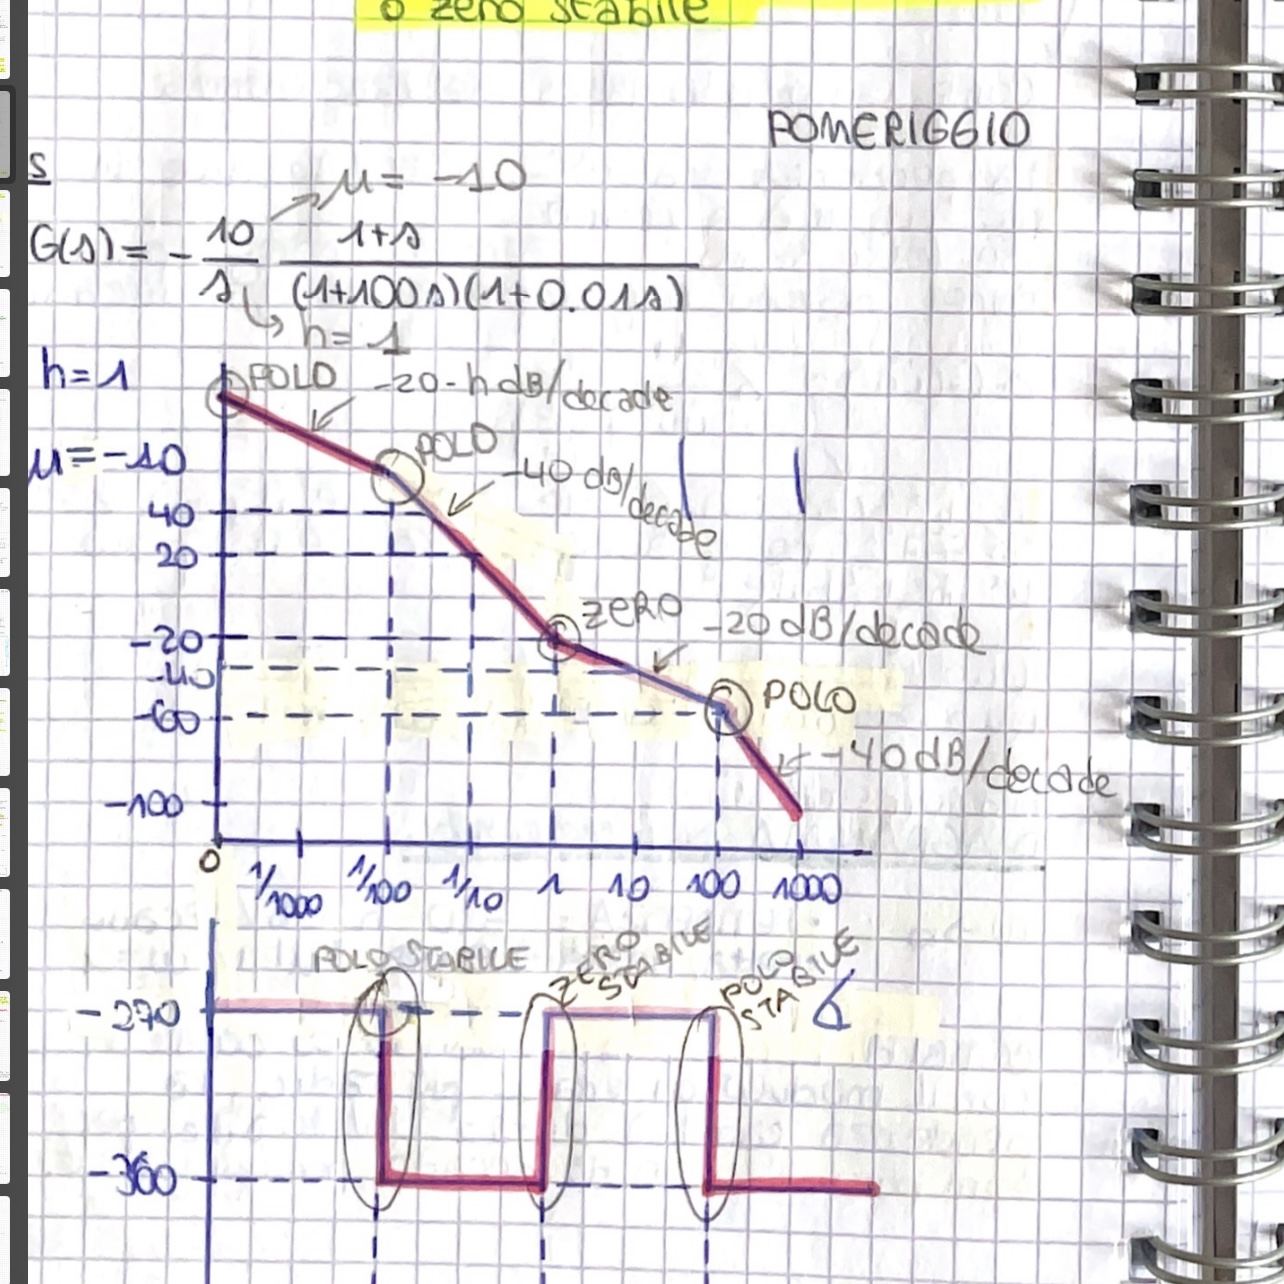 o zero stabile
POMERIGGIO
s
μ = -10
G(s) = - 10/s (1+s)/((1+100s)(1+0.01s))
h = 1
h=1
POLO -20·h dB/decade
μ=-10
POLO
-40 dB/decade
40
20
ZERO -20 dB/decade
-20
-40
POLO
-60
-40 dB/decade
-100
0 1/1000 1/100 1/10 1 10 100 1000
POLO STABILE ZERO STABILE POLO STABILE
-270
-360